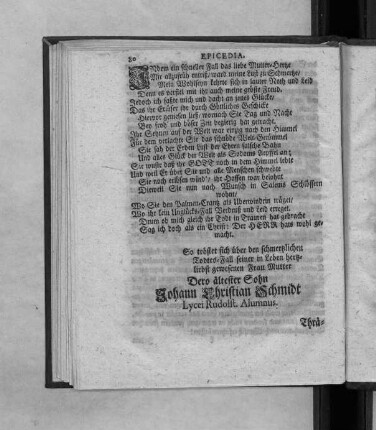 80 EPICEDIA.
INdem ein schneller Fall das liebe Mutter-Hertze
Mir allzufrüh entriß, ward meine Lust zu Schmertze,
Mein Wohlseyn kehrte sich in lauter Noth und Leid
Denn es verfiel mit ihr auch meine gröste Freud.
Jedoch ich faßte mich und dacht an jenes Glücke,
Das ihr Erlöser ihr durch Göttliches Geschicke
Hiervor genießen ließ, wornach Sie Tag und Nacht
Bey froh und böser Zeit begierig hat getracht.
Ihr Sehnen auf der Welt war eintzig nach dem Himmel
Für dem verlachte Sie das schnöde Welt-Getümmel
Sie sah der Erden Lust der Ehren falsche Bahn
Und alles Glück der Welt als Sodoms Aepffel an;
Sie wuste daß ihr GOtt noch in dem Himmel lebte
Und weil Er über Sie und alle Menschen schwebte
Sie auch erhören würd, ihr Hoffen war belohnt
Dieweil Sie nun nach Wunsch in Salems Schlössern
wohnt,
Wo Sie den Palmen-Crantz als Uberwinden träget,
Wo ihr kein Unglücks-Fall Verdruß und Leid erreget.
Drum ob mich gleich ihr Tode in Trauren hat gebracht
Sag ich doch als ein Christ: Der HERR hats wohl ge-
macht.
So tröstet sich über den schmertzlichen
Todtes-Fall seiner in Leben hertz-
liebst gewesenen Frau Mutter
Dero ältester Sohn
Johann Christian Schmidt
Lycei Rudolst. Alumnus.
Thrä-